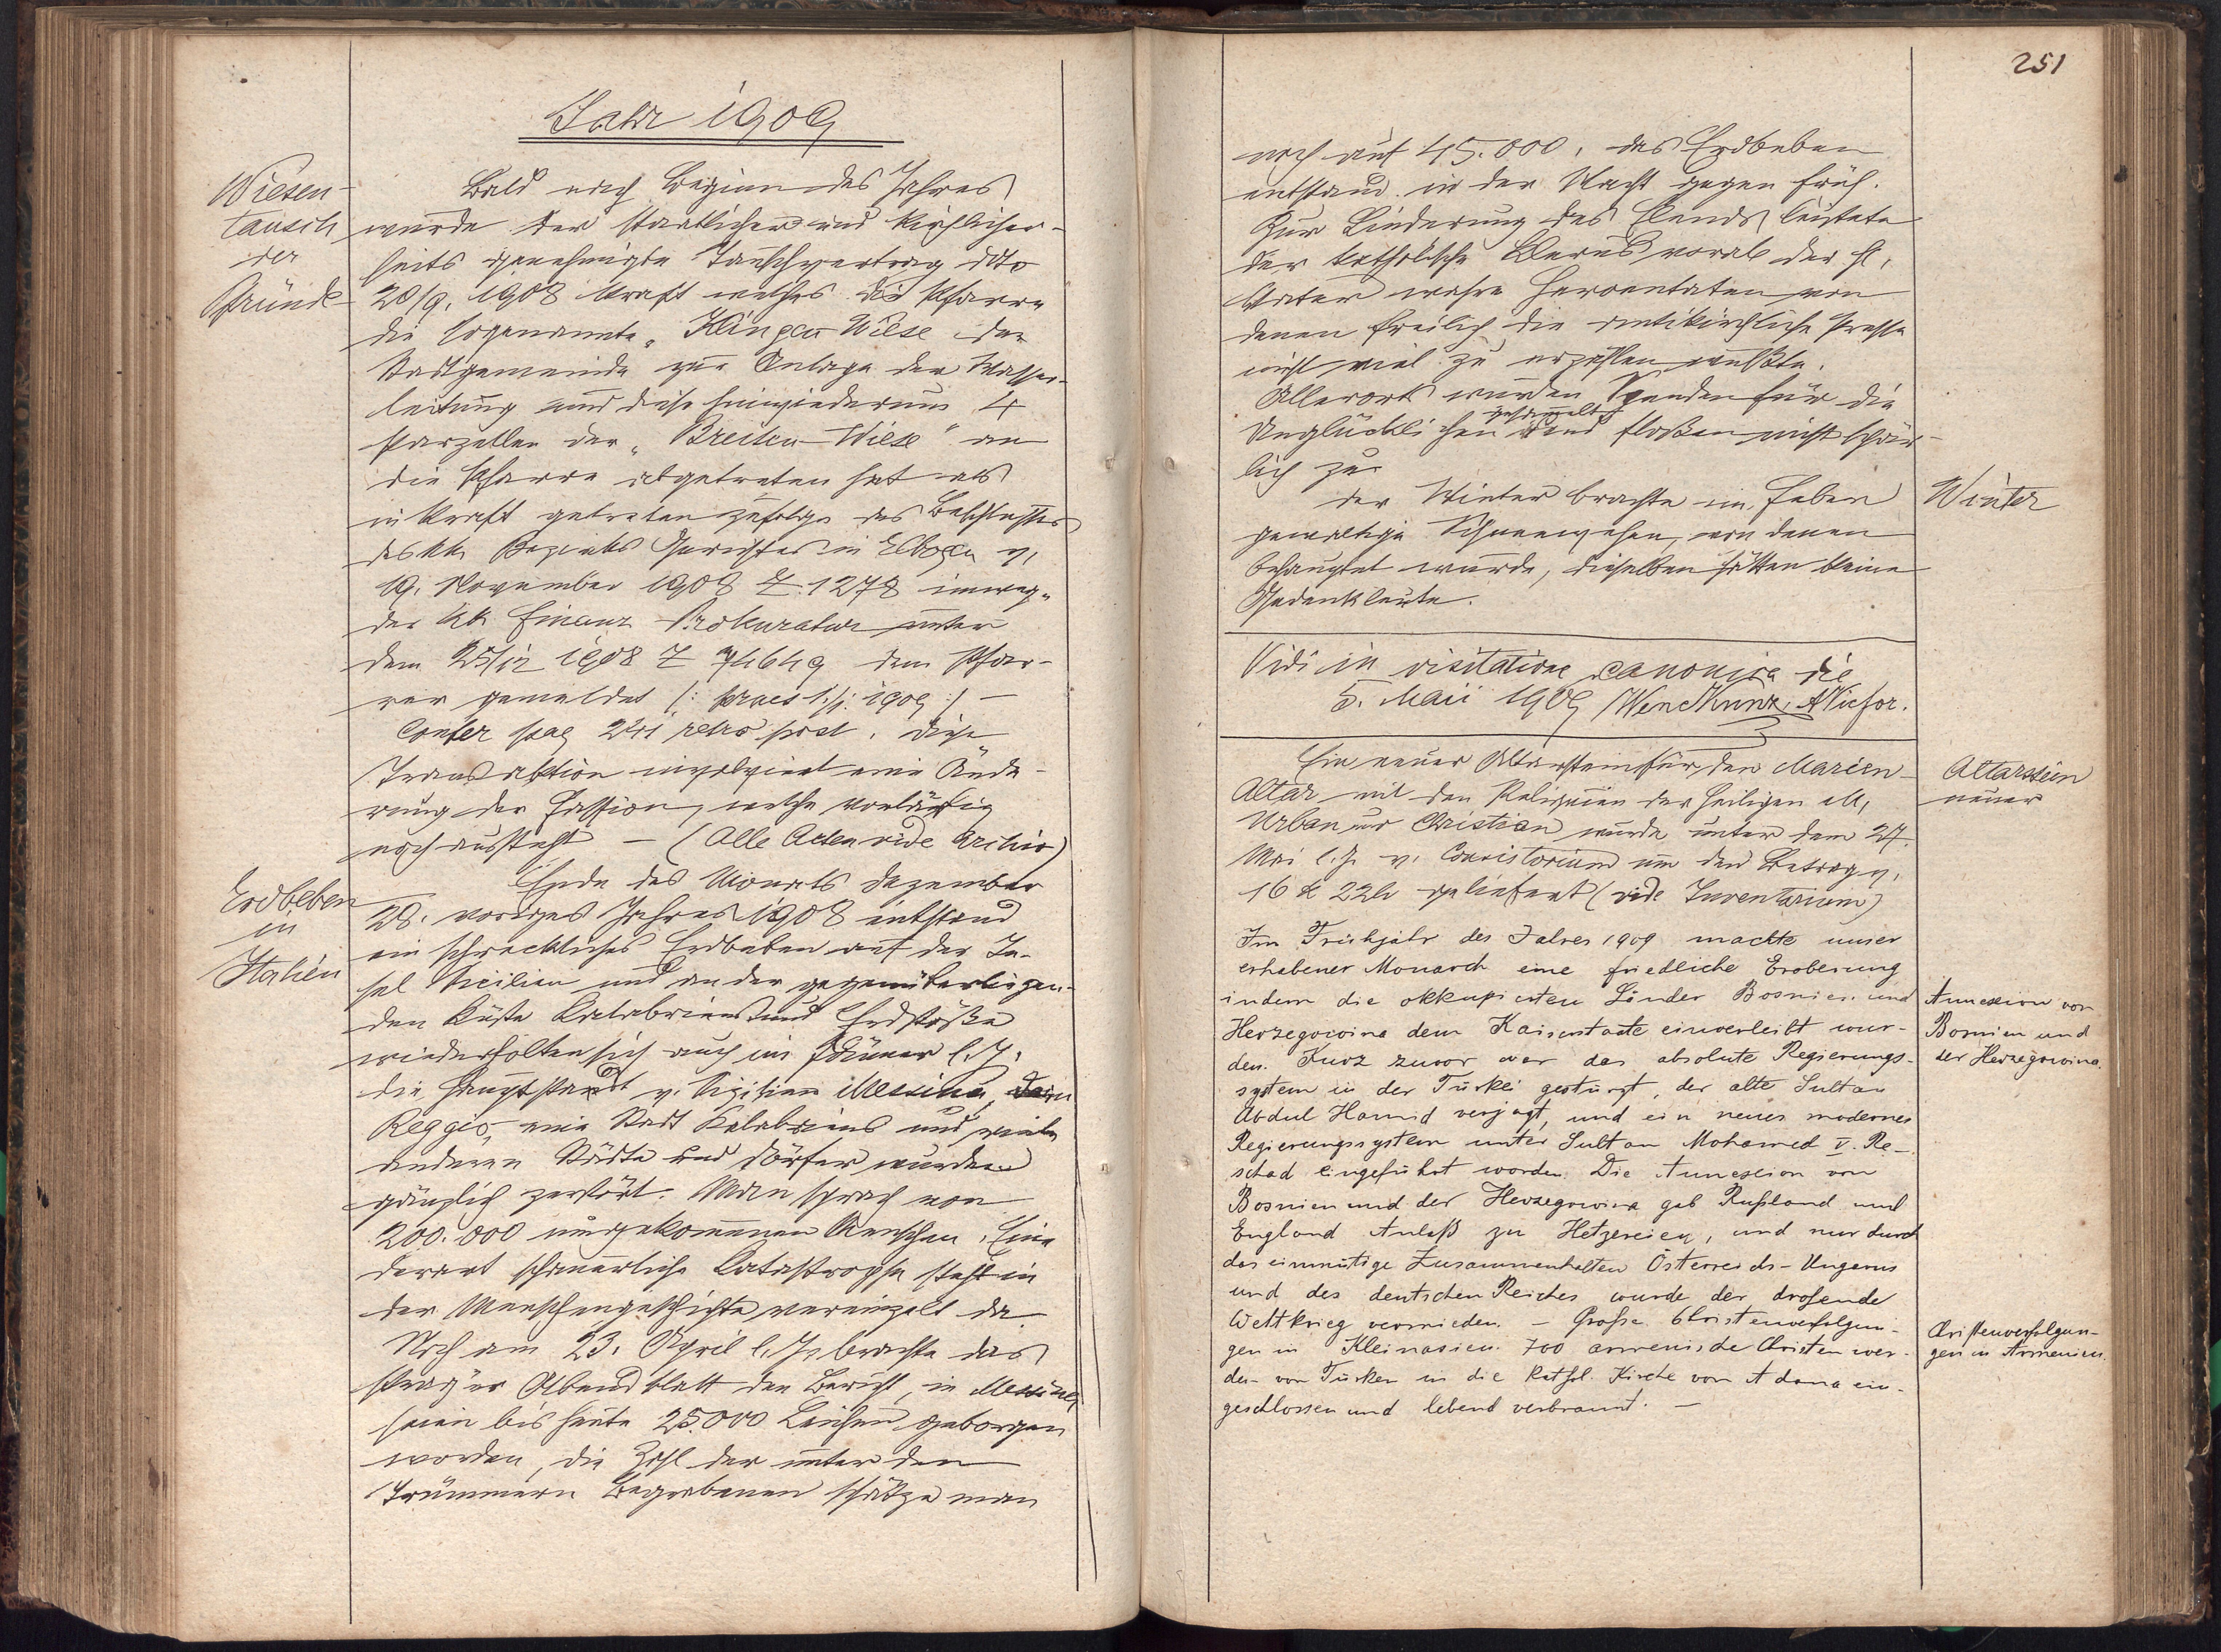 Jahr 1909
Wiesen-
tausch
der
Pfründe
Bald nach Beginn des Jahres
wurde der staatlicher und kirchlicher-
seits genehmigte Tauschvertrag ddto
28/9. 1908 kraft welches die Pfarre
die sogenannte „Klingen Wiese der
Stadtgemeinde zur Anlage der Wasser-
leitung und diese hinwiederum 4
Parzellen der „Breiten-Wiese" an
die Pfarre abgetreten hat als
in Kraft getreten zufolge des Beschlusses
des kk. Bezirks Gerichtes in Elbogen v.
19. November 1908 Z. 1278
der kk Finanz-Prokuratur unter
dem 25/12 1908 Z 74649 dem Pfar-
rer gemeldet /: praes 1./1. 1909 :/ —
Confer pag 241 retro post. Diese
Transaktion involviert eine Ände-
rung der Fassion, welche vorläufig
noch aussteht — (Alle Acten vide Archiv)
Erdbeben
in
Italien
Ende des Monats Dezember
28. voriges Jahres 1908 entstand
ein schreckliches Erdbeben auf der In-
sel Sicilien und an der gegenüberliegen-
den Küste Calabriens und Erdstöße
wiederholten sich auch im Jänner l. J.
die Hauptstandt v. Sizilien Messina, dann
Reggio, eine Stadt Kalabriens und viele
anderen Städte und Dörfer wurden
gänzlich zerstört. Man sprach von
200.000 umgekommenen Menschen. Eine
derart schauerliche Katastrophe steht in
der Menschengeschichte vereinzelt da.
Noch am 23. April l. J. brachte das
Prager Abendblatt den Bericht, in Messina
seien bis heute 25.000 Leichen geborgen
worden, die Zahl der unter den
Trümmern Begrabenen schätze man
251
noch auf 45.000. das Erdbeben
entstand in der Nacht gegen früh.
Zur Linderung des Elends leistete
der katholische Klerus vorab der hl.
Vater wahre Heroentaten von
denen freilich die antikirchliche Presse
nicht viel zu erzählen wußte.
Allerorts wurden Spenden für die
Unglücklichen gesammelt und floßen nicht spär-
lich zu.
Winter
Der Winter brachte im Feber
gewaltige Schneewehen, von denen
behauptet wurde, dieselben hätten keine
Gedenkleute.
Vidi in visitatione canonica die
5. Maii 1909 Wenc Kunz, AVicfor.
Altarstein
neuer
Ein neuer Altarstein für den Marien-
Altar mit den Reliquien der heiligen M.
Urban und Christian wurde unter dem 27.
Mai l. J. v. Consistorium um den Betrag v.
16 K 22 h geliefert (vide Inventarium)
Im Frühjahr des Jahres 1909 machte unser
erhabener Monarch eine friedliche Eroberung
indem die okkupierten Länder Bosnien und
Herzegowina dem Kaiserstaate einverleibt wur-
den. Kurz zuvor war das absolute Regierungs-
system in der Türkei gestürzt, der alte Sultan
Abdul Hamid verjagt, und ein neues modernes
Regierungssystem unter Sultan Mohamed V. Re-
schad eingeführt worden. Die Annexion von
Bosnien und der Herzegowina gab Rußland und
England Anlaß zu Hetzereien, und nur durch
das einmütige Zusammenhalten Österreichs-Ungarns
und des deutschen Reiches wurde der drohende
Weltkrieg vermieden. – Große Christenverfolgun-
gen in Kleinasien. 700 armenische Christen wer-
den von Türken in die kathol. Kirche von Adana ein-
geschlossen und lebend verbrannt. —
Annexion von
Bosnien und
der Herzegowina.
Christenverfolgun-
gen in Armenien.